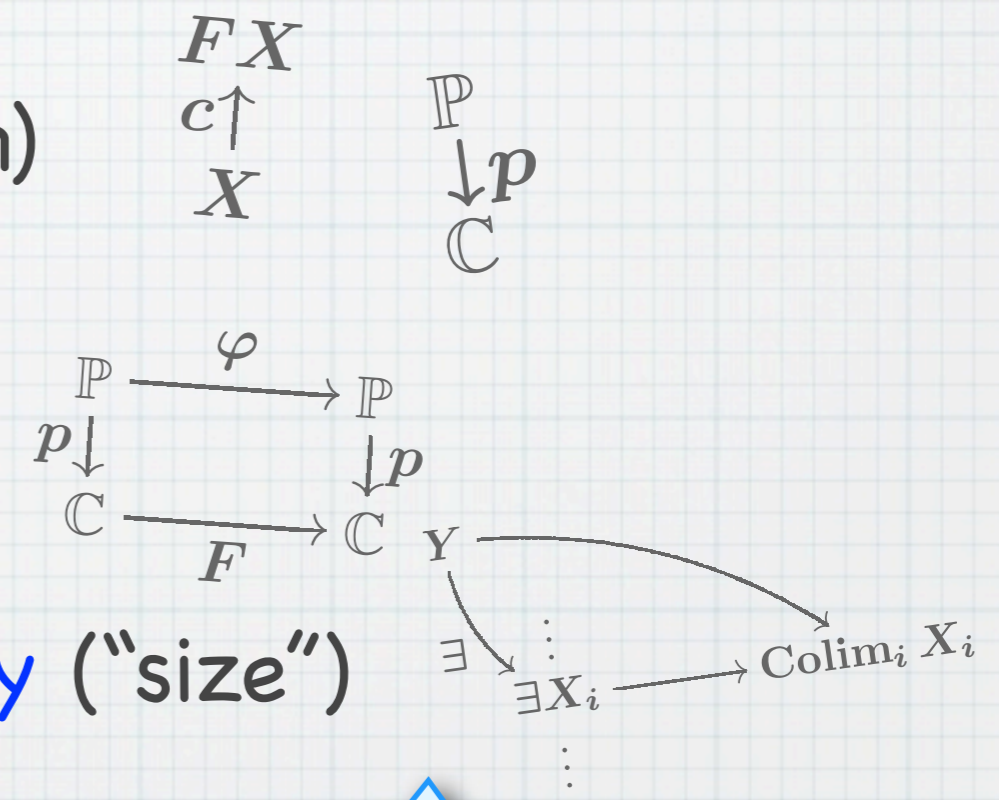 FX
c
X
)
ℙ
p
ℂ
ℙ
φ
ℙ
p
p
ℂ
F
ℂ
Y
∃
∃X_i
Colim_i X_i
y ("size")